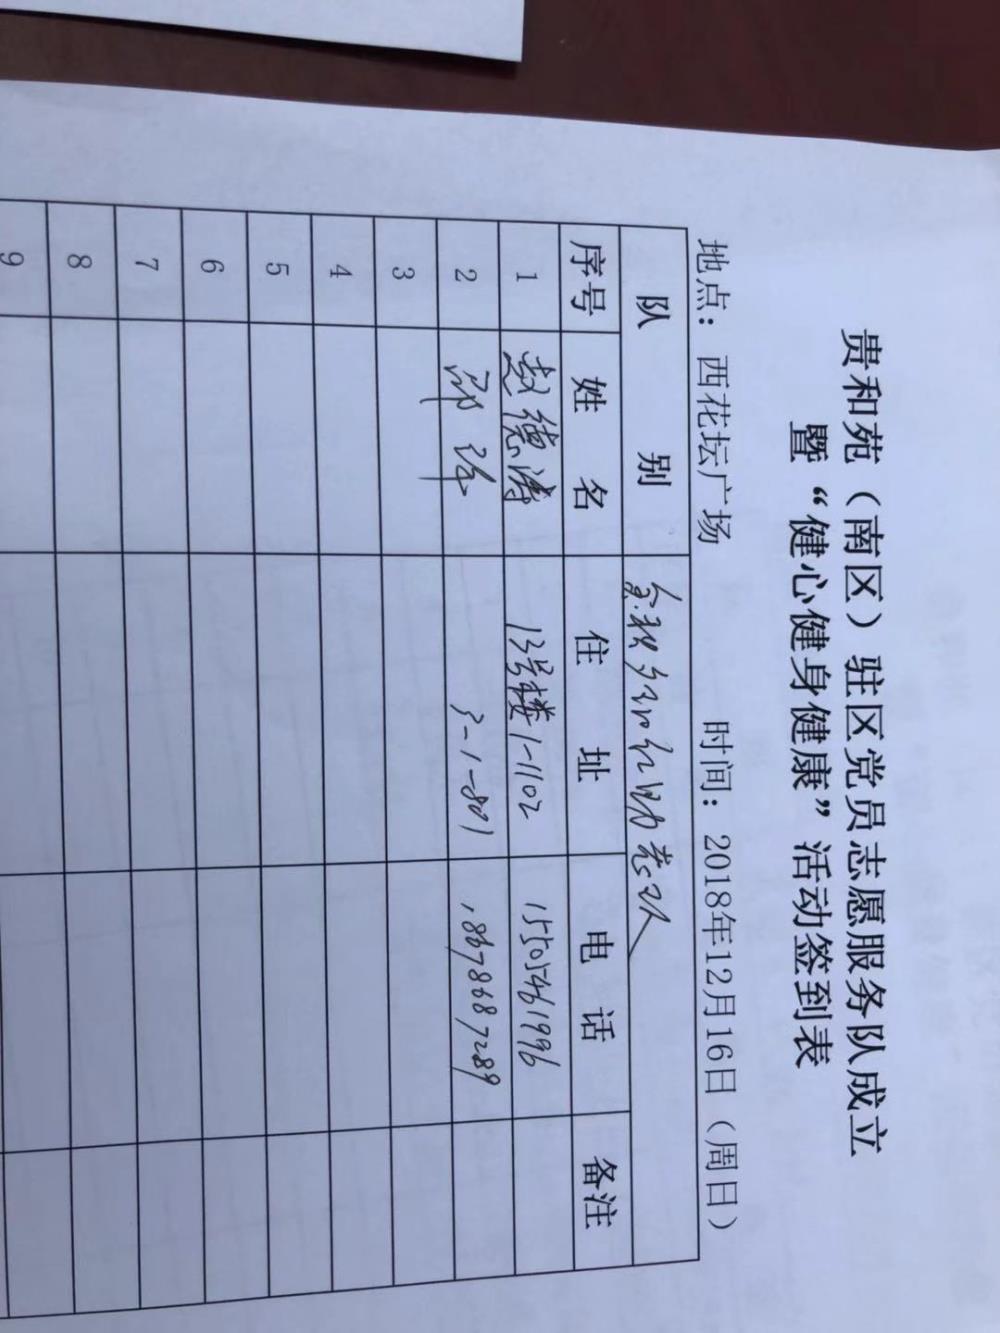 贵和苑（南区）驻区党员志愿服务队成立
暨“健心健身健康”活动签到表
地点：西花坛广场 时间：2018年12月16日（周日）
队 别
序号 姓 名 住 址 电 话 备注
1 赵德涛 13号楼1-1102 15505461996
2 邵 3-1-801 18678687289
3
4
5
6
7
8
9